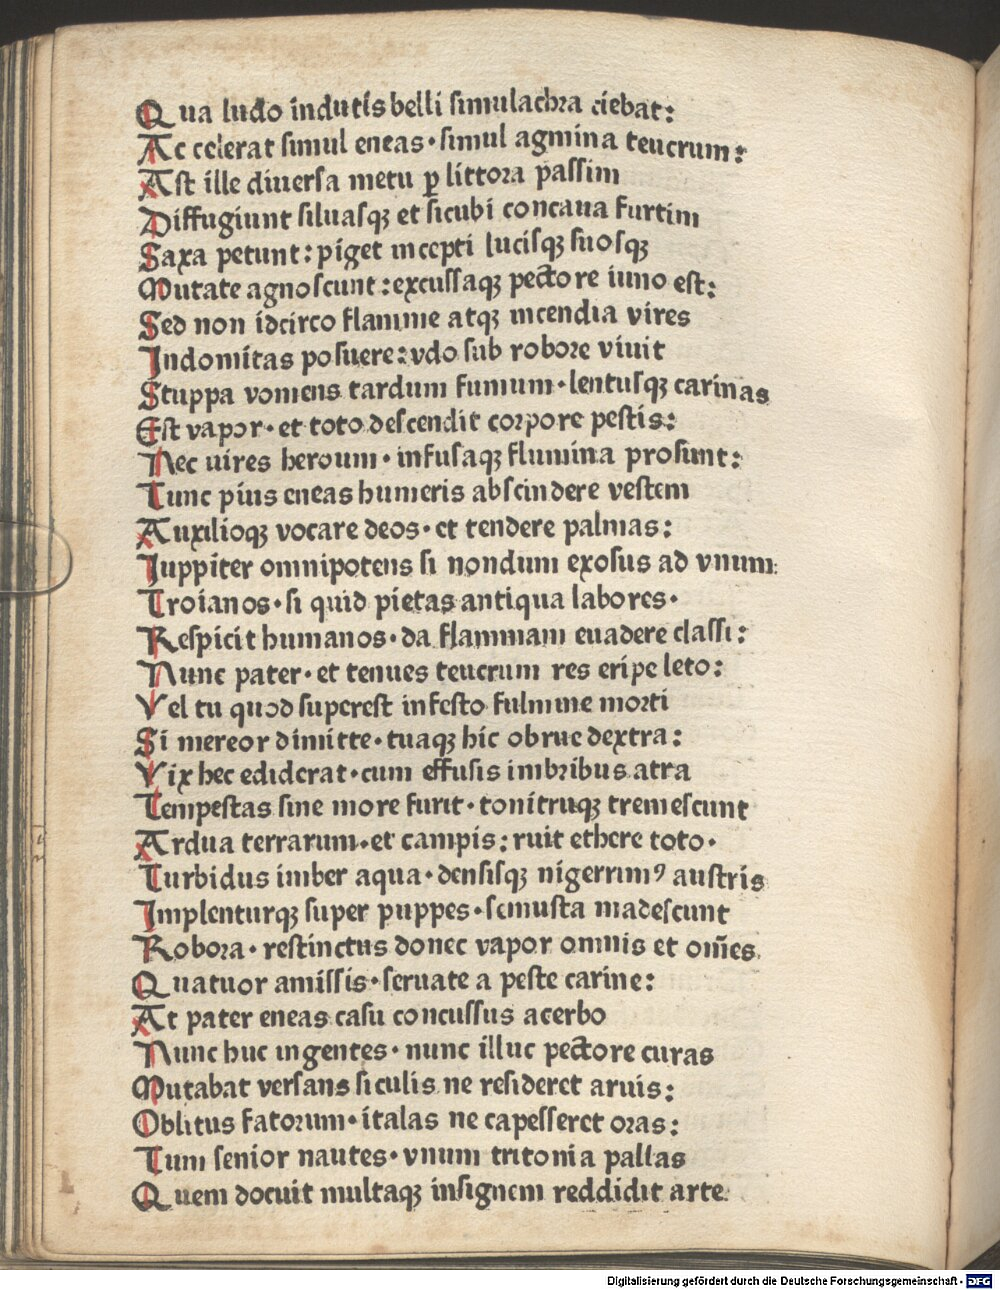 Qua ludo indutis belli simulachra ciebat:
Ac celerat simul eneas·simul agmina teucrum:
Ast ille diuersa metu ꝑ littora passim
Diffugiunt siluasqꝫ et sicubi concaua furtim
Saxa petunt: piget incepti lucisqꝫ suosqꝫ
Mutate agnoscunt:excussaqꝫ pectore iuno est:
Sed non idcirco flamme atqꝫ incendia vires
Indomitas posuere:vdo sub robore viuit
Stuppa vomens tardum fumum·lentusqꝫ carinas
Est vapor·et toto descendit corpore pestis:
Nec uires heroum·infusaqꝫ flumina prosunt:
Tunc pius eneas humeris abscindere vestem
Auxilioqꝫ vocare deos·et tendere palmas:
Iuppiter omnipotens si nondum exosus ad vnum:
Troianos·si quid pietas antiqua labores·
Respicit humanos·da flammam euadere classi:
Nunc pater·et tenues teucrum res eripe leto:
Vel tu quod superest infesto fulmine morti
Si mereor dimitte·tuaqꝫ hic obrue dextra:
Vix hec ediderat·cum effusis imbribus atra
Tempestas sine more furit·tonitruqꝫ tremescunt
Ardua terrarum·et campis:ruit ethere toto·
Turbidus imber aqua·densisqꝫ nigerrimꝰ austris
Implenturqꝫ super puppes·semusta madescunt
Robora·restinctus donec vapor omnis et om̅es
Quatuor amissis·seruate a peste carine:
At pater eneas casu concussus acerbo
Nunc huc ingentes·nunc illuc pectore curas
Mutabat versans siculis ne resideret aruis:
Oblitus fatorum·italas ne capesseret oras:
Tum senior nautes·vnum tritonia pallas
Quem docuit multaqꝫ insignem reddidit arte
Digitalisierung gefördert durch die Deutsche Forschungsgemeinschaft · DFG